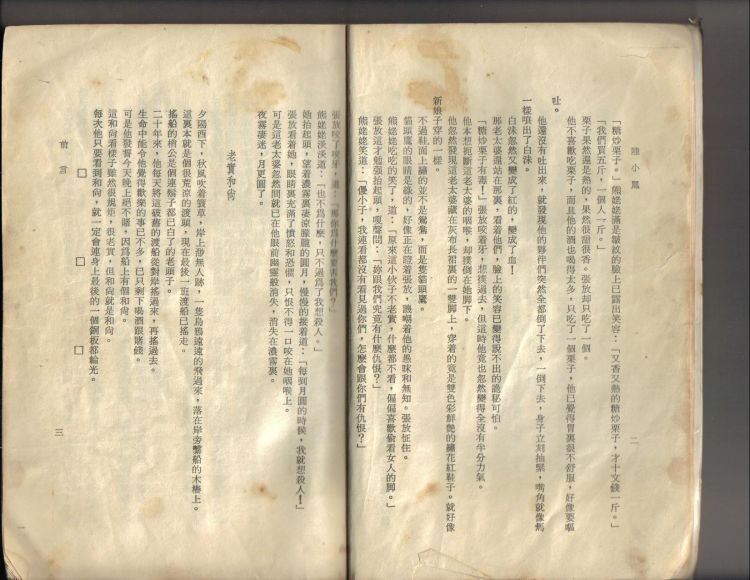 陸小鳳
二
「糖炒栗子。」熊姥姥滿是皺紋的臉上已露出笑容：「又香又熱的糖炒栗子，才十文錢一斤。」
「我們買五斤，一個人一斤。」
栗子果然還是熱的，果然很甜很香。張放却只吃了一個。
他不喜歡吃栗子，而且他的酒也喝得太多，只吃了一個栗子，他已覺得胃裏很不舒服，好像要嘔
吐。
他還沒有吐出來，就發現他的夥伴們突然全都倒了下去，一倒下去，身子立刻抽緊，嘴角就像馬
一樣噴出了白沫。
白沫忽然又變成了紅的，變成了血！
那老太婆還站在那裏，看着他們，臉上的笑容已變得說不出的詭秘可怕。
「糖炒栗子有毒！」張放咬着牙，想撲過去，但這時他竟也忽然變得全沒有半分力氣。
他本想扼斷這老太婆的咽喉，却撲倒在她脚下。
他忽然發現這老太婆藏在灰布長裙裏的一雙脚上，穿着的竟是雙色彩鮮艷的綉花紅鞋子。就好像
新娘子穿的一樣。
不過鞋面上綉的並不是鴛鴦，而是隻貓頭鷹。
貓頭鷹的眼睛是綠的，好像正在瞪着張放，譏嘲着他的愚昧和無知。張放怔住。
熊姥姥吃吃的笑了，道：「原來這小伙子不老實，什麼都不看，偏偏喜歡偷看女人的脚。」
張放這才勉強抬起頭，嗄聲問：「妳跟我們究竟有什麼仇恨？」
熊姥姥笑道：「傻小子，我連看都沒有看見過你們，怎麼會跟你們有仇恨？」
張放咬了咬牙，道：「那你為什麼要害我們？」
熊姥姥淡淡道：「也不為什麼，只不過為了我想殺人。」
她抬起頭，望着濃霧裏淒涼朦朧的圓月，慢慢的接着道：「每到月圓的時候，我就想殺人！」
張放看着她，眼睛裏充滿了憤怒和恐懼，只恨不得一口咬在她咽喉上。
可是這老太婆忽然間就已在他眼前幽靈般消失，消失在濃霧裏。
夜霧淒迷，月更圓了。
老實和尚
夕陽西下，秋風吹着衰草，岸上渺無人跡，一隻烏鴉遠遠的飛過來，落在岸旁繫船的木樁上。
這裏本就是個很荒涼的渡頭，現在最後一班渡船已搖走。
搖船的梢公是個連鬍子都已白了的老頭子。
二十年來，他每天將這破舊的渡船從對岸搖過來，再搖過去。
生命中能令他覺得歡樂的事已不多，已只剩下喝酒跟賭錢。
可是他發誓今天晚上絕不賭，因為船上有個和尚。
這和尚看樣子雖然很規矩，很老實，但和尚就是和尚。
每次他只要看到和尚，就一定會連身上最後的一個銅板都輸光。
前言
三